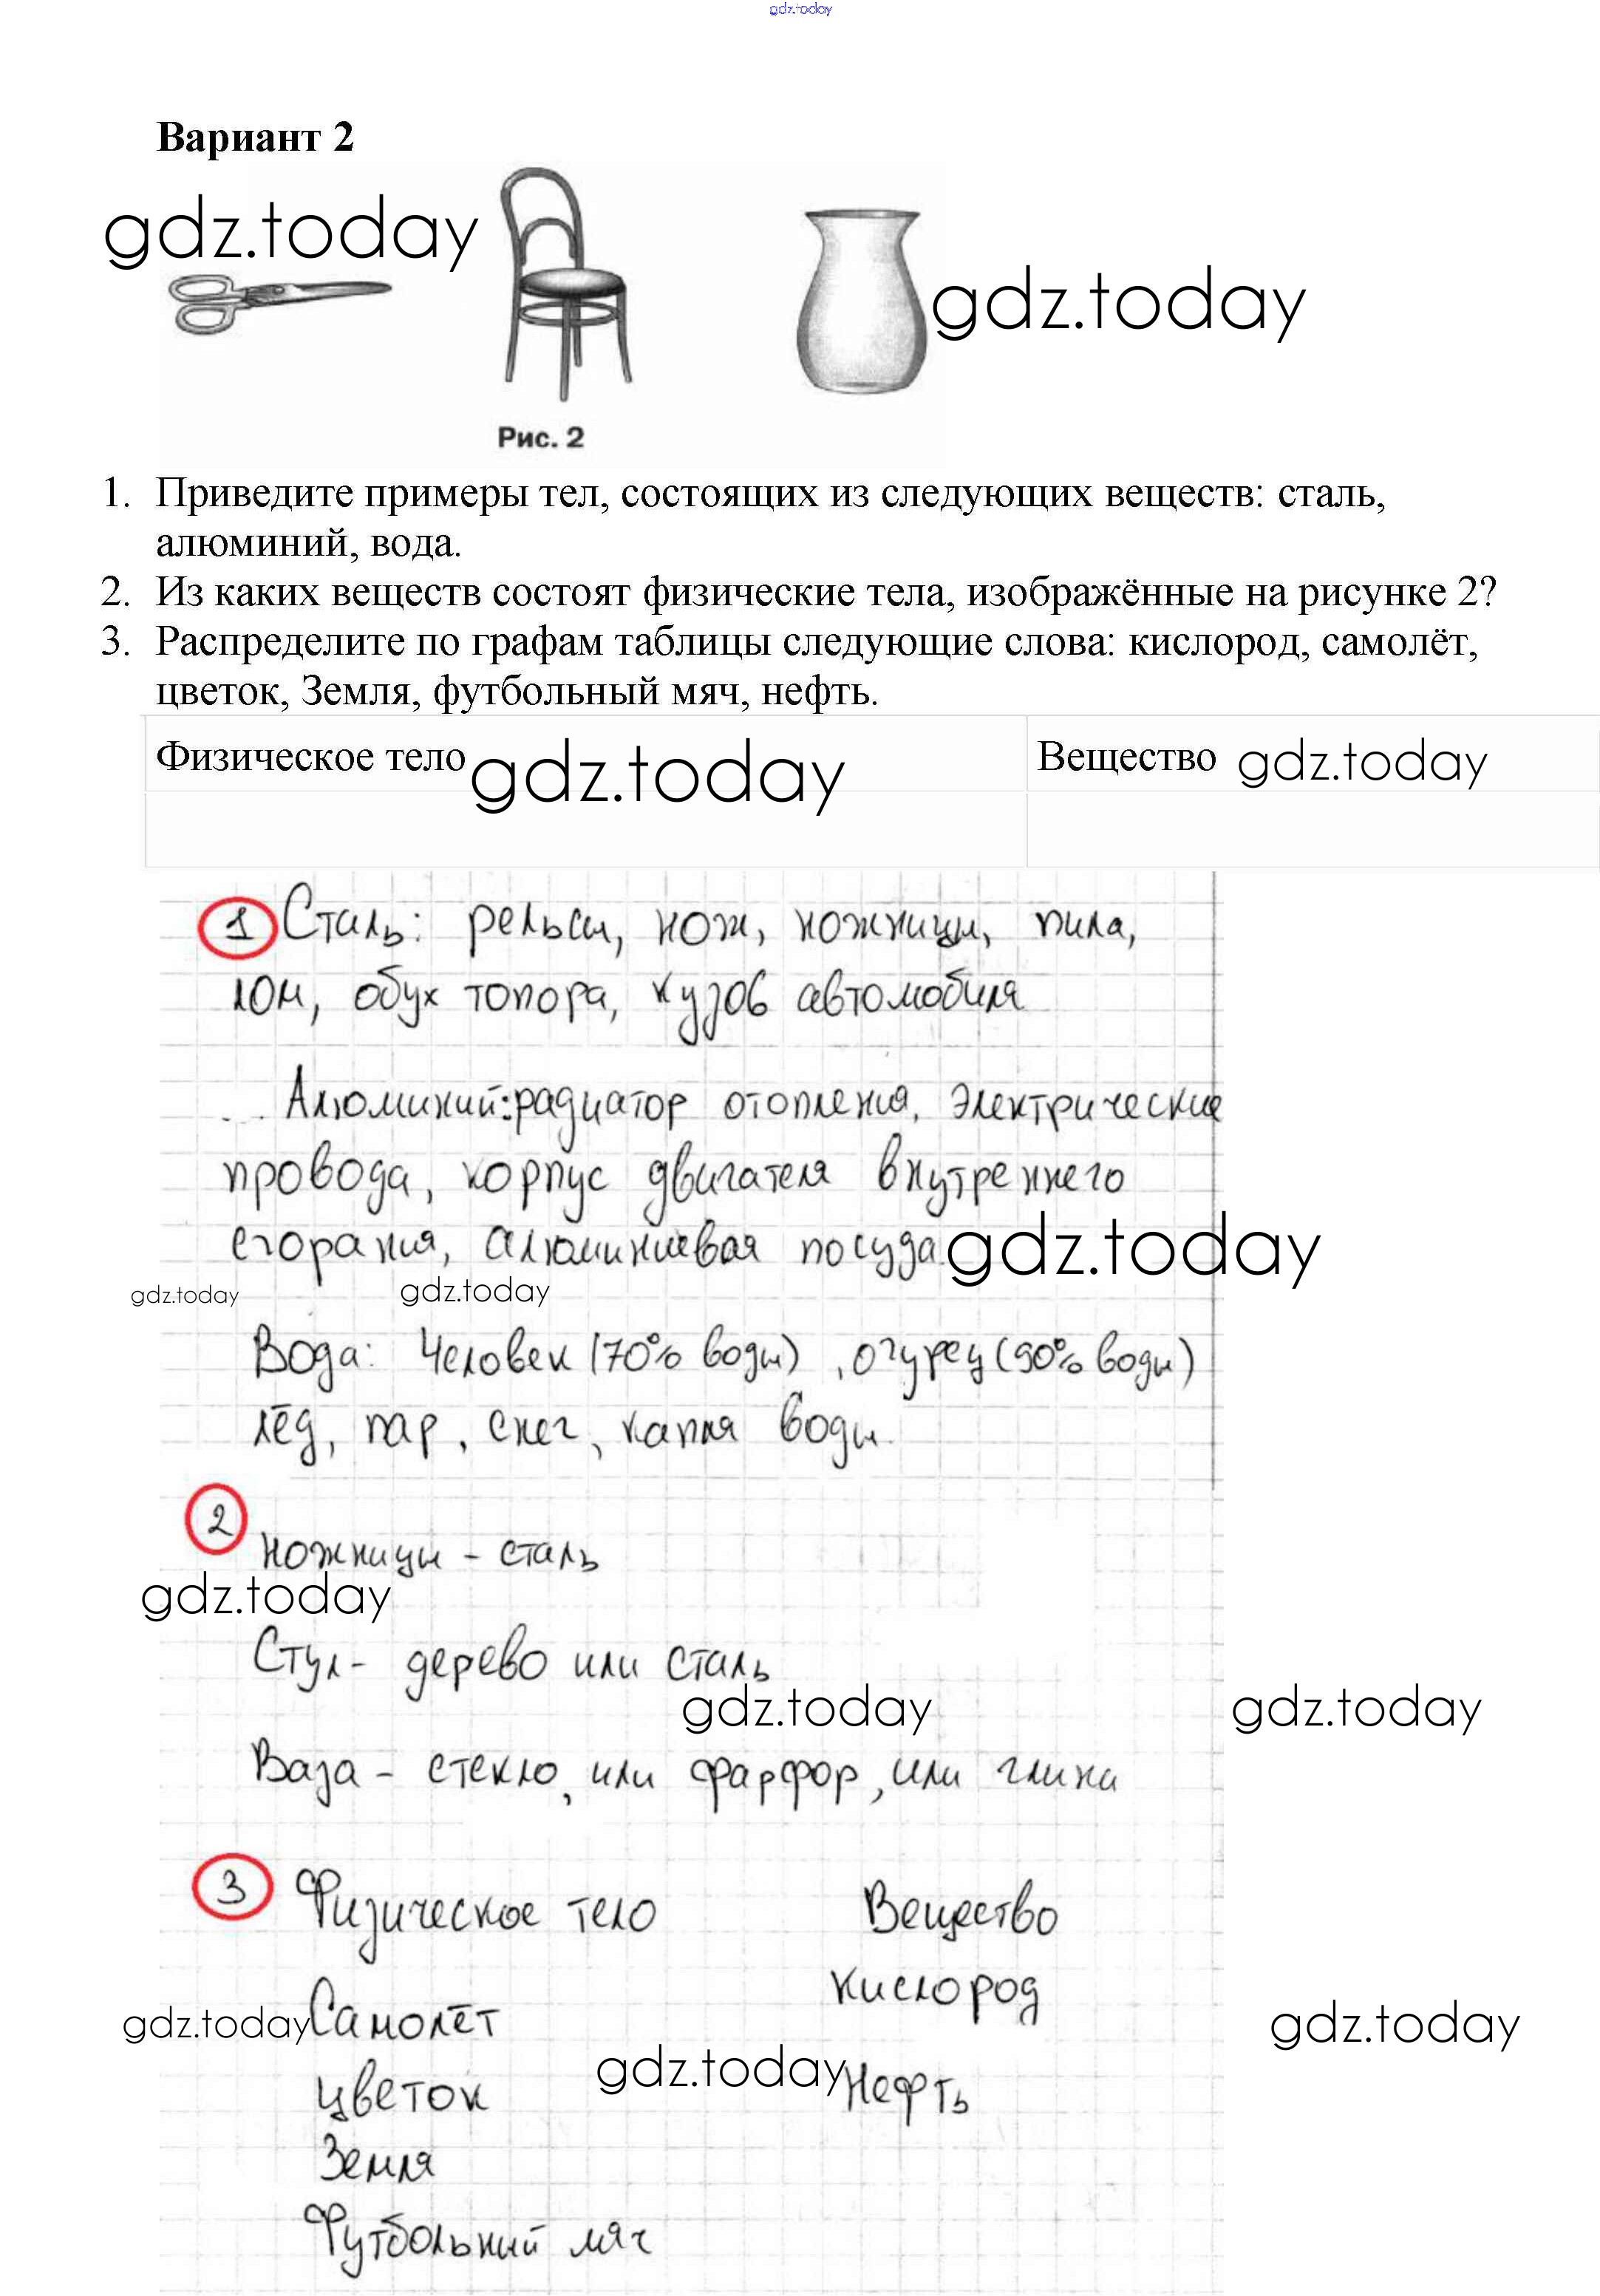 gdz.today
Вариант 2
gdz.today
gdz.today
Рис. 2
1. Приведите примеры тел, состоящих из следующих веществ: сталь,
алюминий, вода.
2. Из каких веществ состоят физические тела, изображённые на рисунке 2?
3. Распределите по графам таблицы следующие слова: кислород, самолёт,
цветок, Земля, футбольный мяч, нефть.
Физическое тело gdz.today Вещество gdz.today
1 Сталь: рельсы, нож, ножницы, пила,
лом, обух топора, кузов автомобиля
Алюминий: радиатор отопления, электрические
провода, корпус двигателя внутреннего
сгорания, алюминиевая посуда gdz.today
gdz.today gdz.today
Вода: Человек (70% воды), огурец (90% воды)
лёд, пар, снег, капля воды.
2 Ножницы - сталь
gdz.today
Стул - дерево или сталь
gdz.today gdz.today
Ваза - стекло, или фарфор, или глина
3 Физическое тело Вещество
Кислород
gdz.today Самолёт gdz.today
gdz.today Нефть
цветок
Земля
Футбольный мяч